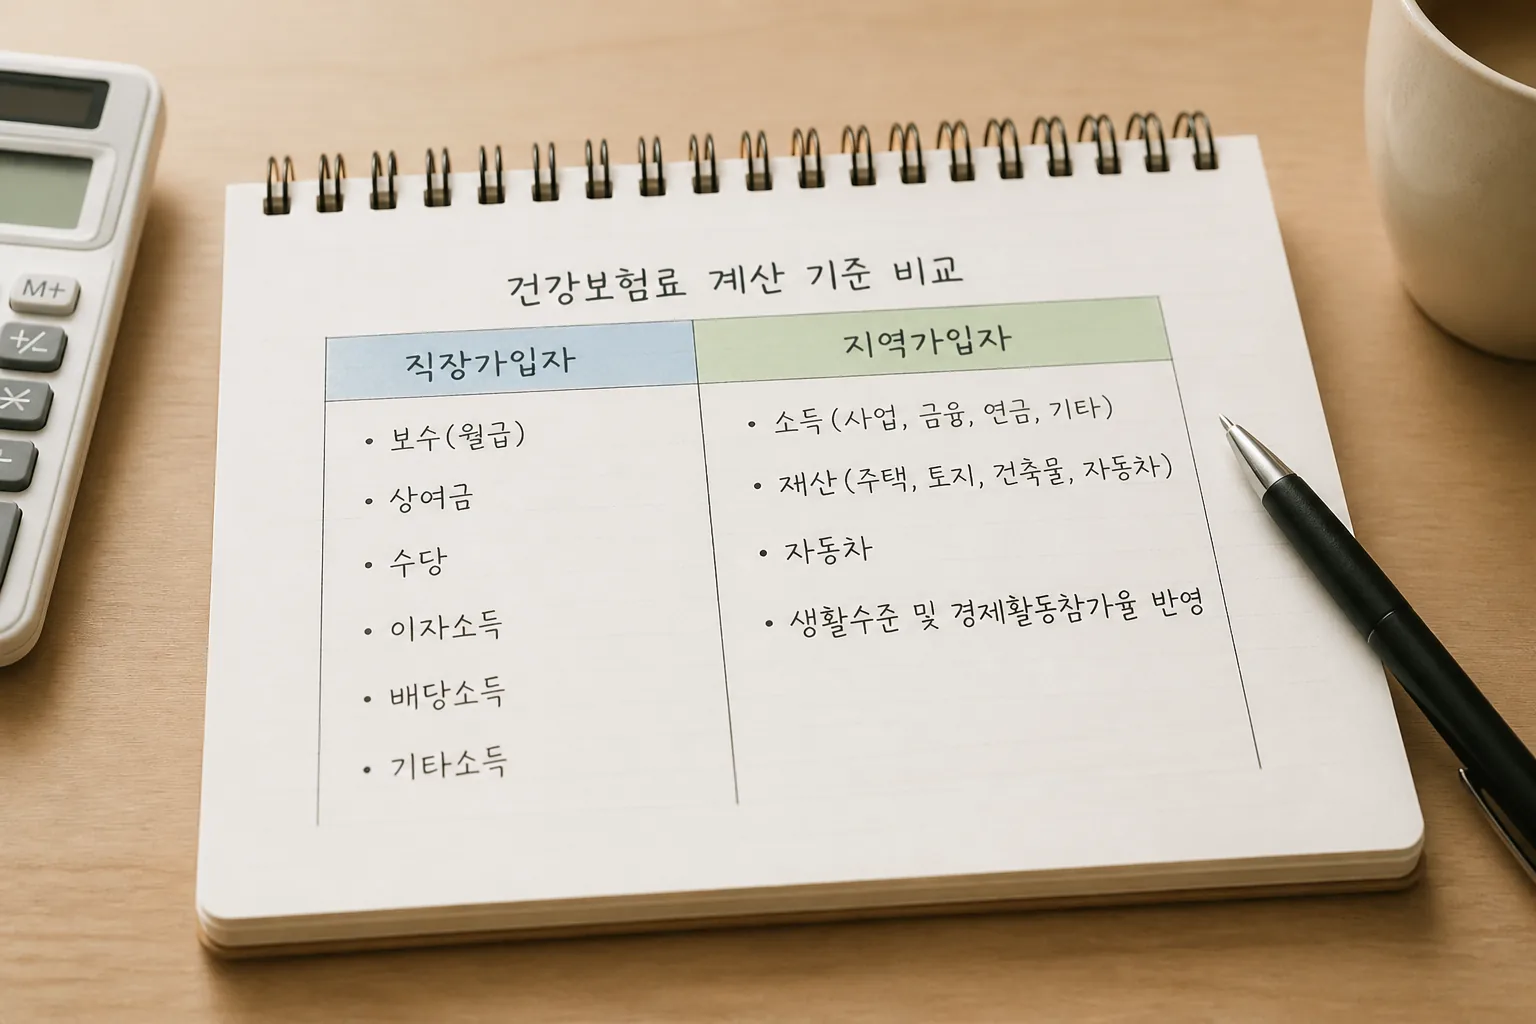 M+
+/-
건강보험료 계산 기준 비교
직장가입자
• 보수(월급)
• 상여금
• 수당
• 이자소득
• 배당소득
• 기타소득
지역가입자
• 소득(사업, 금융, 연금, 기타)
• 재산(주택, 토지, 건축물, 자동차)
• 자동차
• 생활수준 및 경제활동참가율 반영